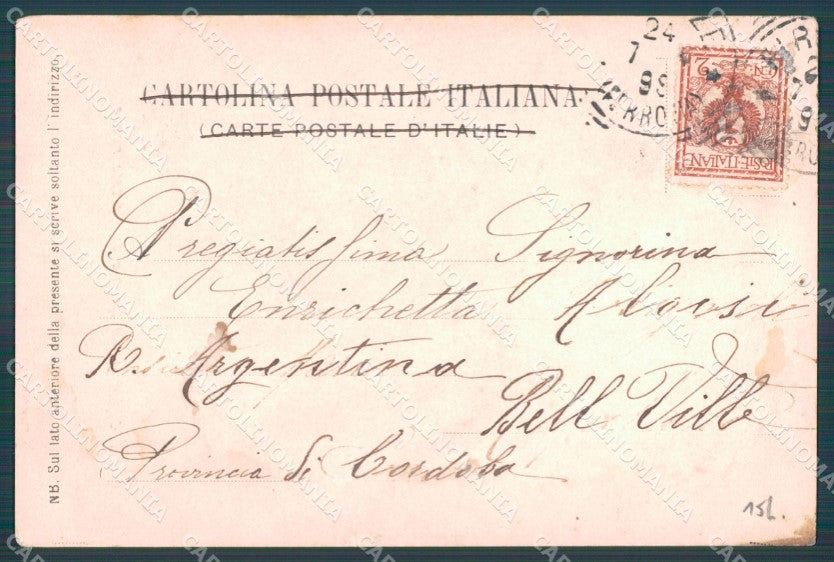 CARTOLINA POSTALE ITALIANA
(CARTE POSTALE D'ITALIE)
24
CEN 2
POSTE ITALIANE
Pregiatissima Signorina
Enrichetta Aloisi
R. Argentina
Bell Ville
Provincia di Cordoba
NB. Sul lato anteriore della presente si scrive soltanto l'indirizzo.
15L
CARTOLINOMANIA